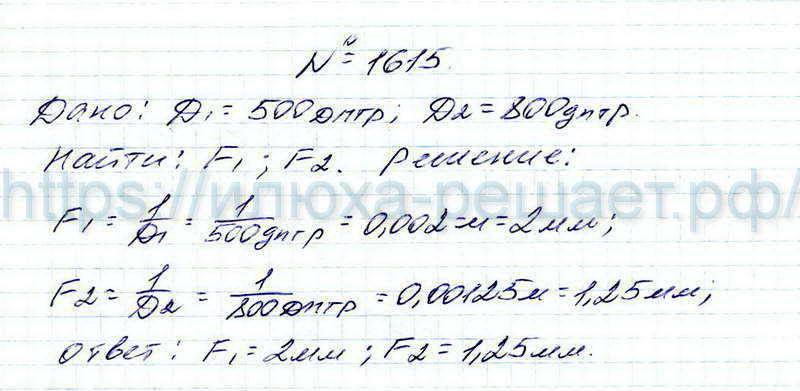 № 1615.
Дано: D₁ = 500 дптр; D₂ = 800 дптр.
Найти: F₁; F₂. Решение:
https://илюха-решает.рф/
F₁ = 1/D₁ = 1/500 дптр = 0,002 = м = 2 мм;
F₂ = 1/D₂ = 1/800 дптр = 0,00125 м = 1,25 мм;
Ответ: F₁ = 2 мм; F₂ = 1,25 мм.